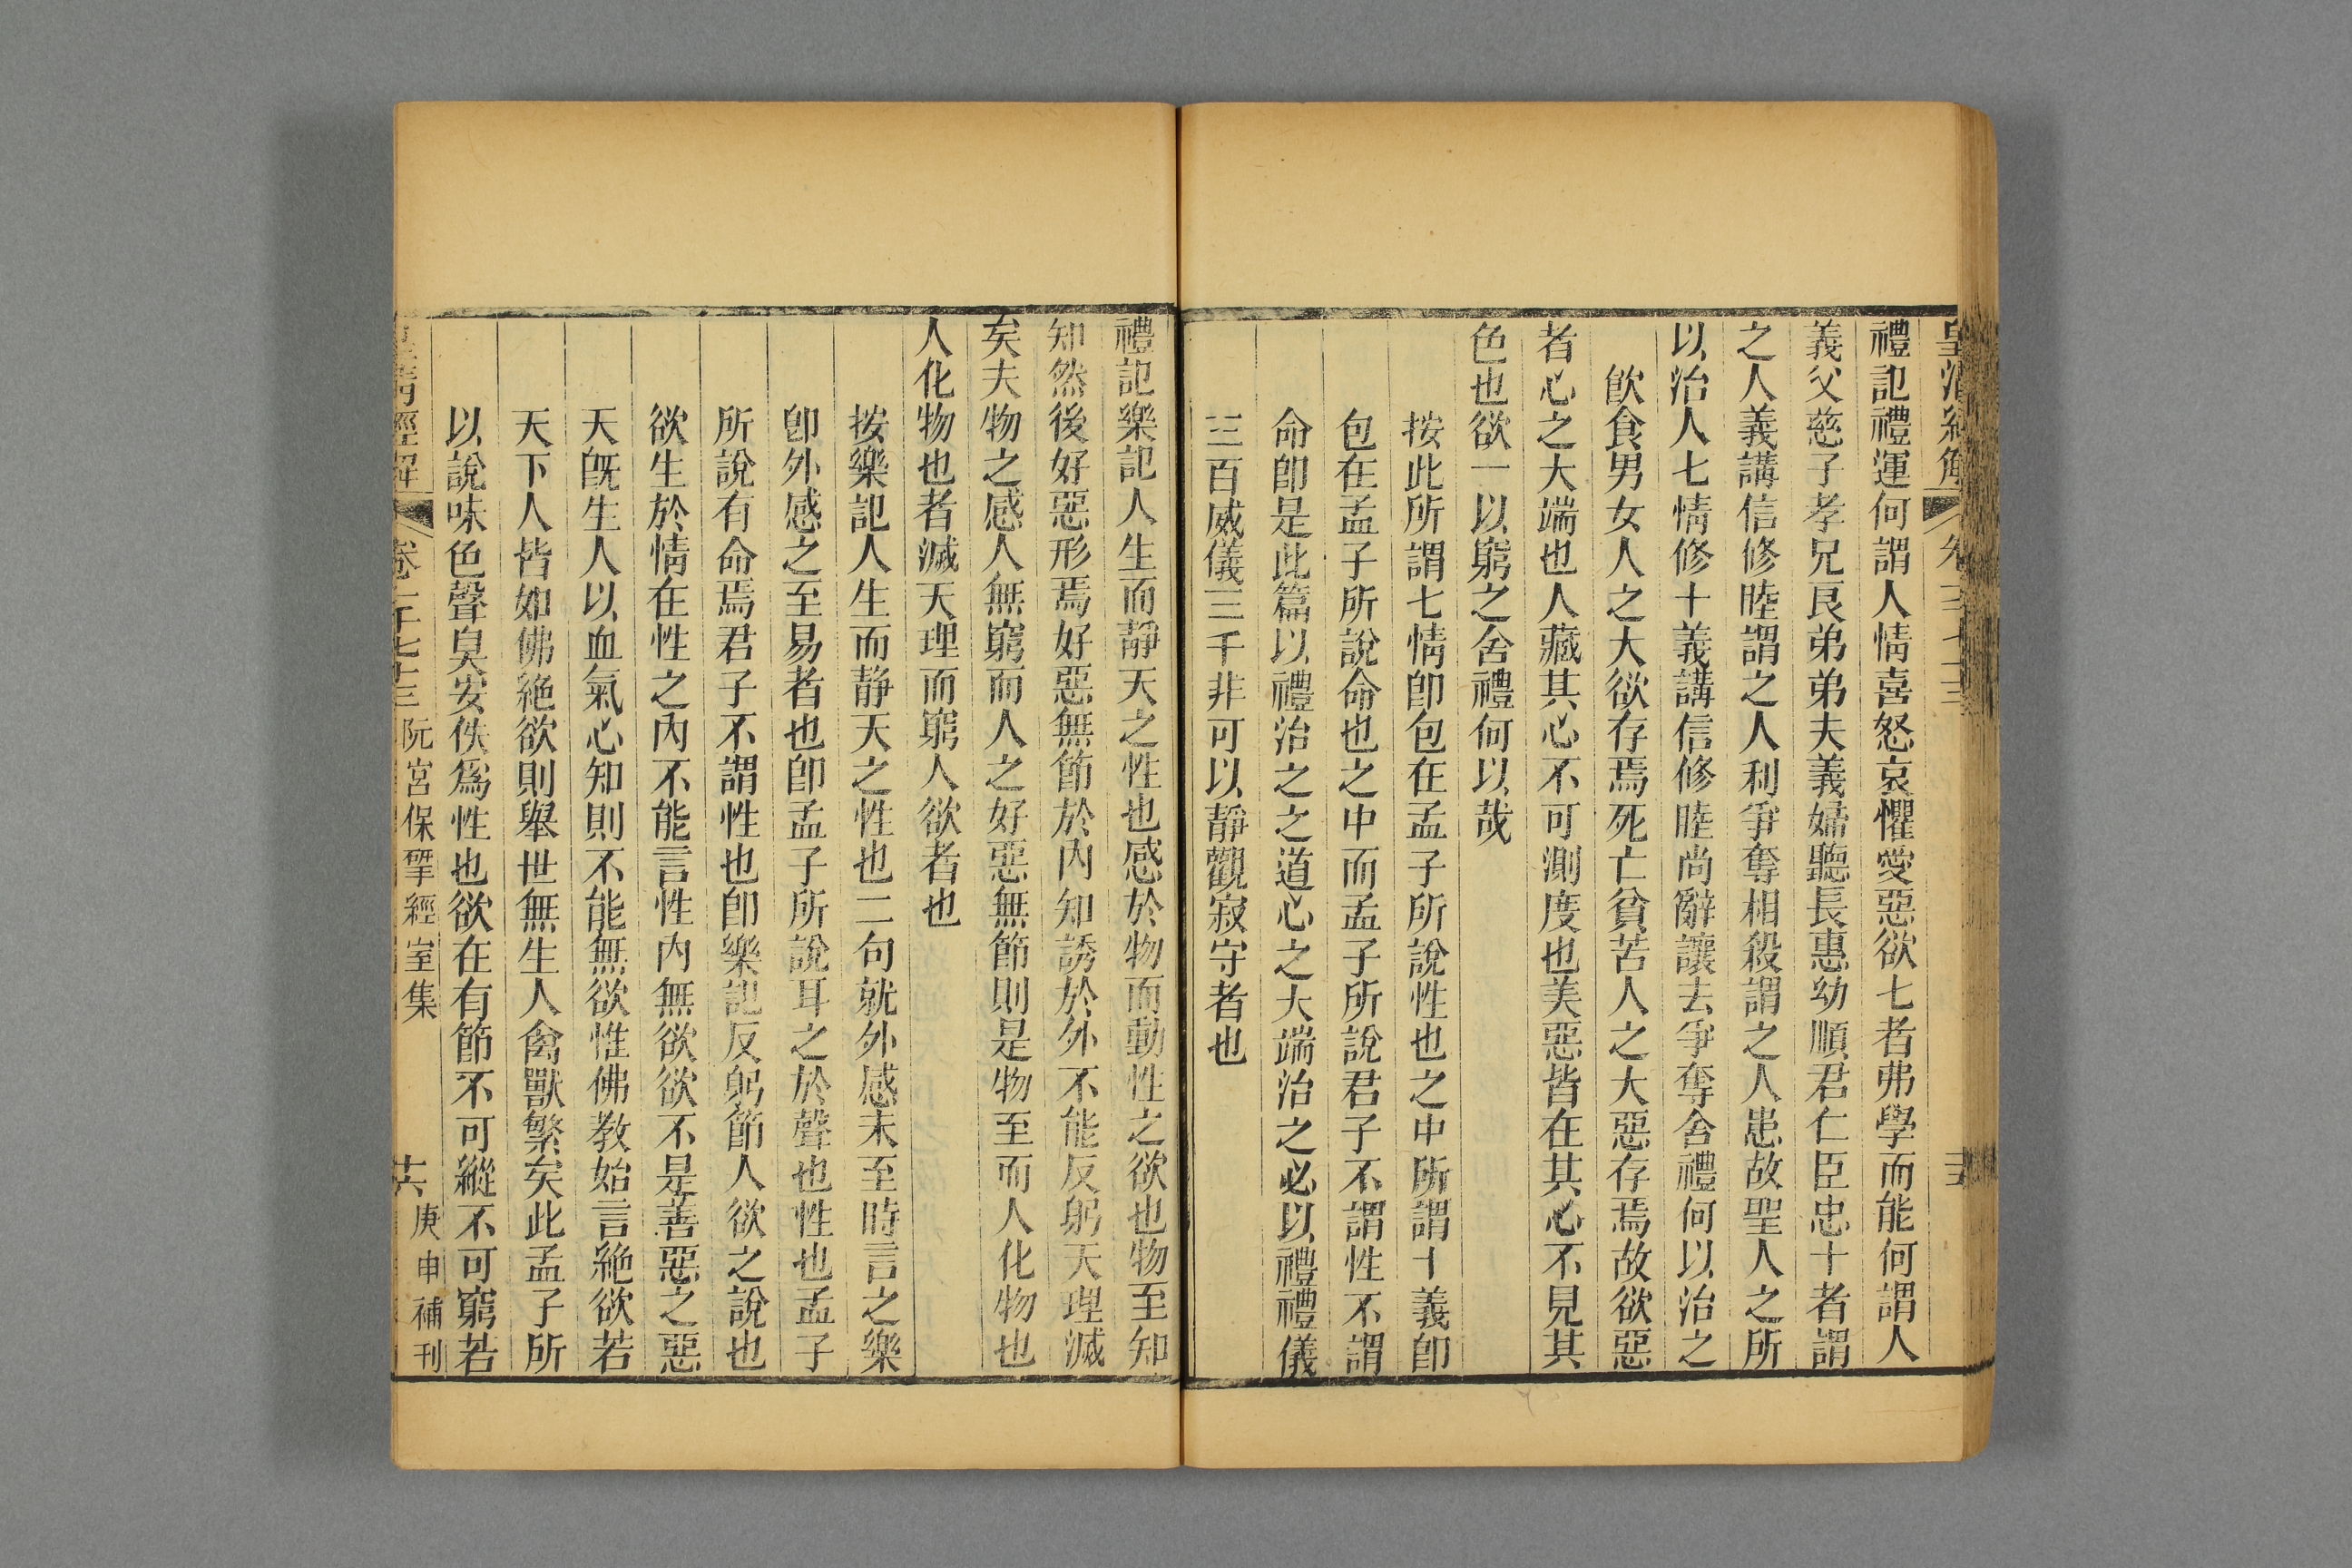 禮記禮運何謂人情喜怒哀懼愛惡欲七者弗學而能何謂人
義父慈子孝兄良弟弟夫義婦聽長惠幼順君仁臣忠十者謂
之人義講信修睦謂之人利爭奪相殺謂之人患故聖人之所
以治人七情修十義講信修睦尚辭讓去爭奪舍禮何以治之
飲食男女人之大欲存焉死亡貧苦人之大惡存焉故欲惡
者心之大端也人藏其心不可測度也美惡皆在其心不見其
色也欲一以窮之舍禮何以哉
按此所謂七情卽包在孟子所說性也之中所謂十義卽
包在孟子所說命也之中而孟子所說君子不謂性不謂
命卽是此篇以禮治之之道心之大端治之必以禮禮儀
三百威儀三千非可以靜觀寂守者也
禮記樂記人生而靜天之性也感於物而動性之欲也物至知
知然後好惡形焉好惡無節於內知誘於外不能反躬天理滅
矣夫物之感人無窮而人之好惡無節則是物至而人化物也
人化物也者滅天理而窮人欲者也
按樂記人生而静天之性也二句就外感未至時言之樂
卽外感之至易者也卽孟子所說耳之於聲也性也孟子
所說有命焉君子不謂性也卽樂記反躬節人欲之說也
欲生於情在性之內不能言性內無欲欲不是善惡之惡
天旣生人以血氣心知則不能無欲惟佛教始言絶欲若
天下人皆如佛絶欲則舉世無生人禽獸繁矣此孟子所
以說味色聲臭安佚爲性也欲在有節不可縱不可窮若
皇清經解
卷一千七十三
阮宮保揅經室集
共
庚申補刊